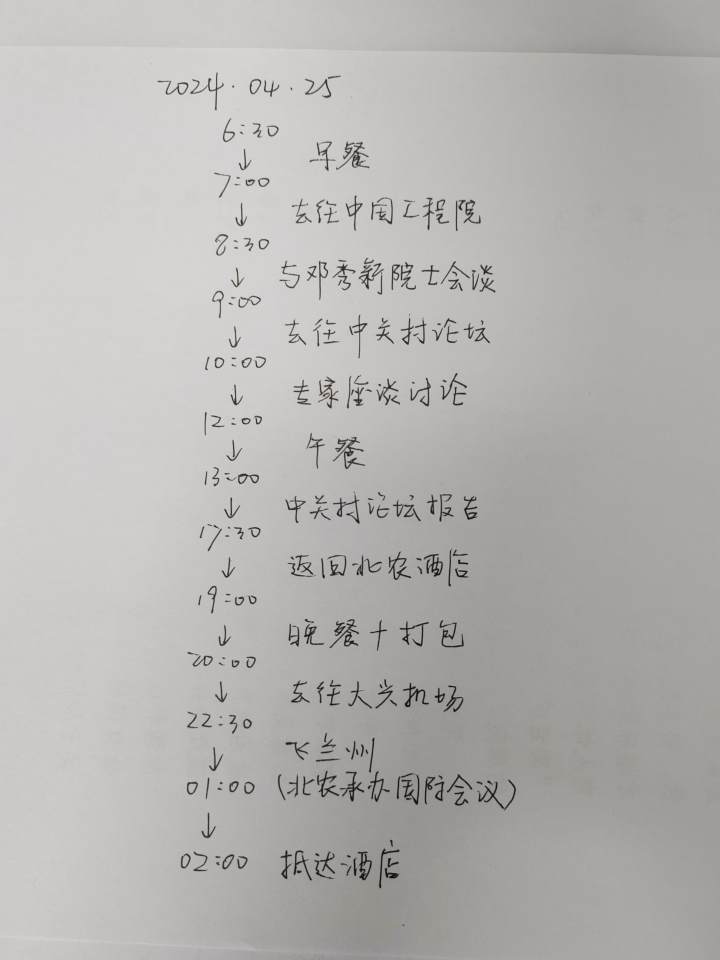 2024.04.25
6:30
↓ 早餐
7:00
↓ 去往中国工程院
8:30
↓ 与邓秀新院士会谈
9:00
↓ 去往中关村论坛
10:00
↓ 专家座谈讨论
12:00
↓ 午餐
13:00
↓ 中关村论坛报告
17:30
↓ 返回北农酒店
19:00
↓ 晚餐+打包
20:00
↓ 去往大兴机场
22:30
↓ 飞兰州
01:00 (北农承办国际会议)
↓
02:00 抵达酒店